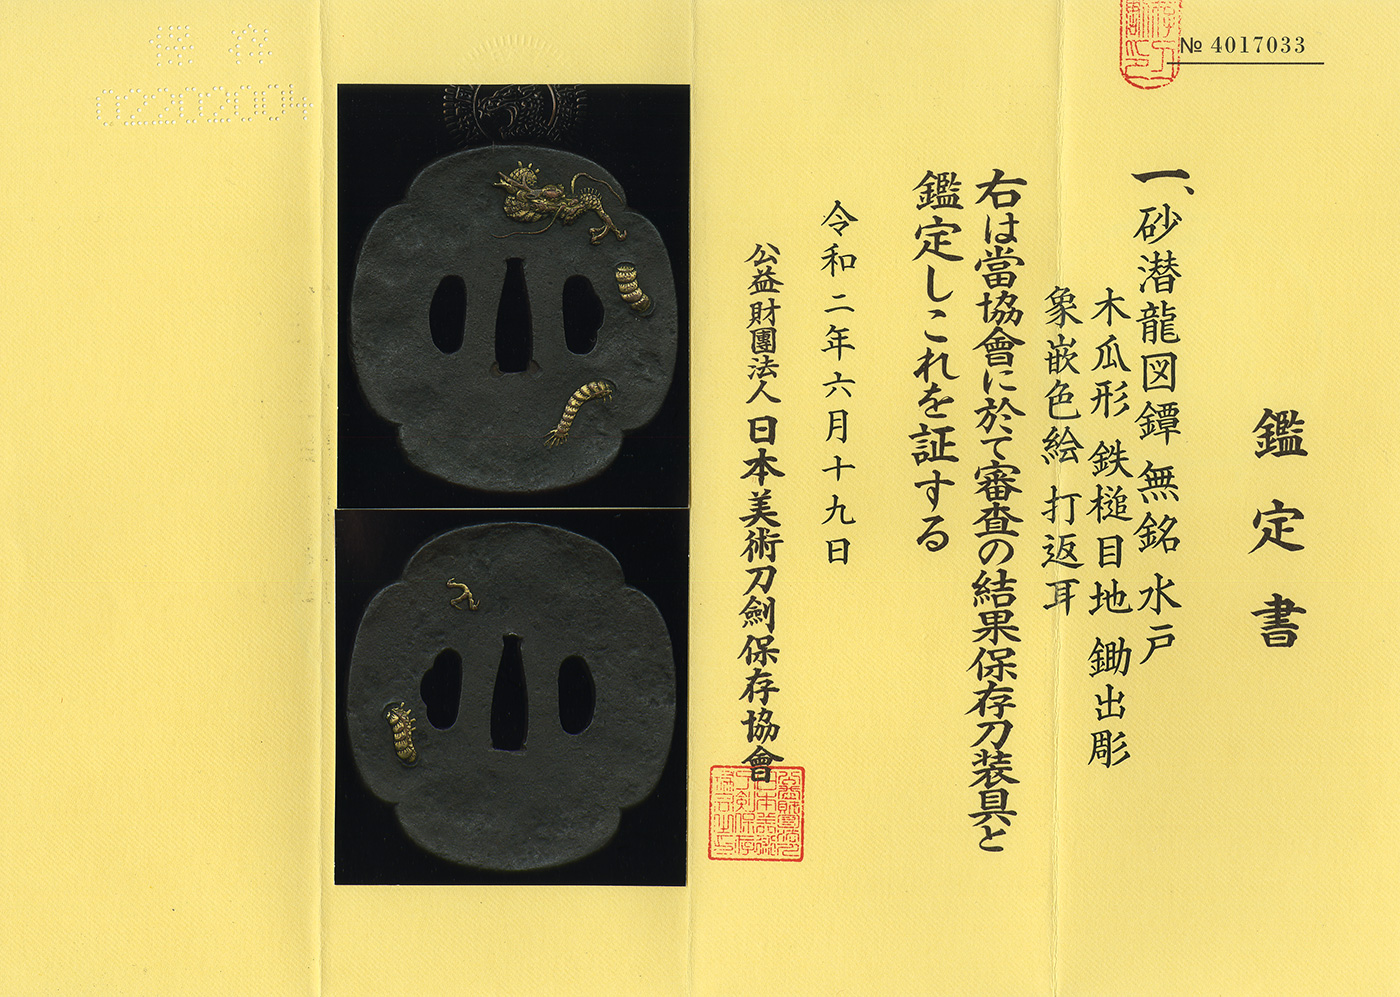 № 4017033
鑑定書
一、砂潜龍図鐔 無銘 水戸
木瓜形 鉄槌目地 鋤出彫
象嵌色絵 打返耳
右は當協會に於て審査の結果保存刀装具と
鑑定しこれを証する
令和二年六月十九日
公益財團法人 日本美術刀劍保存協會
保存
02202004